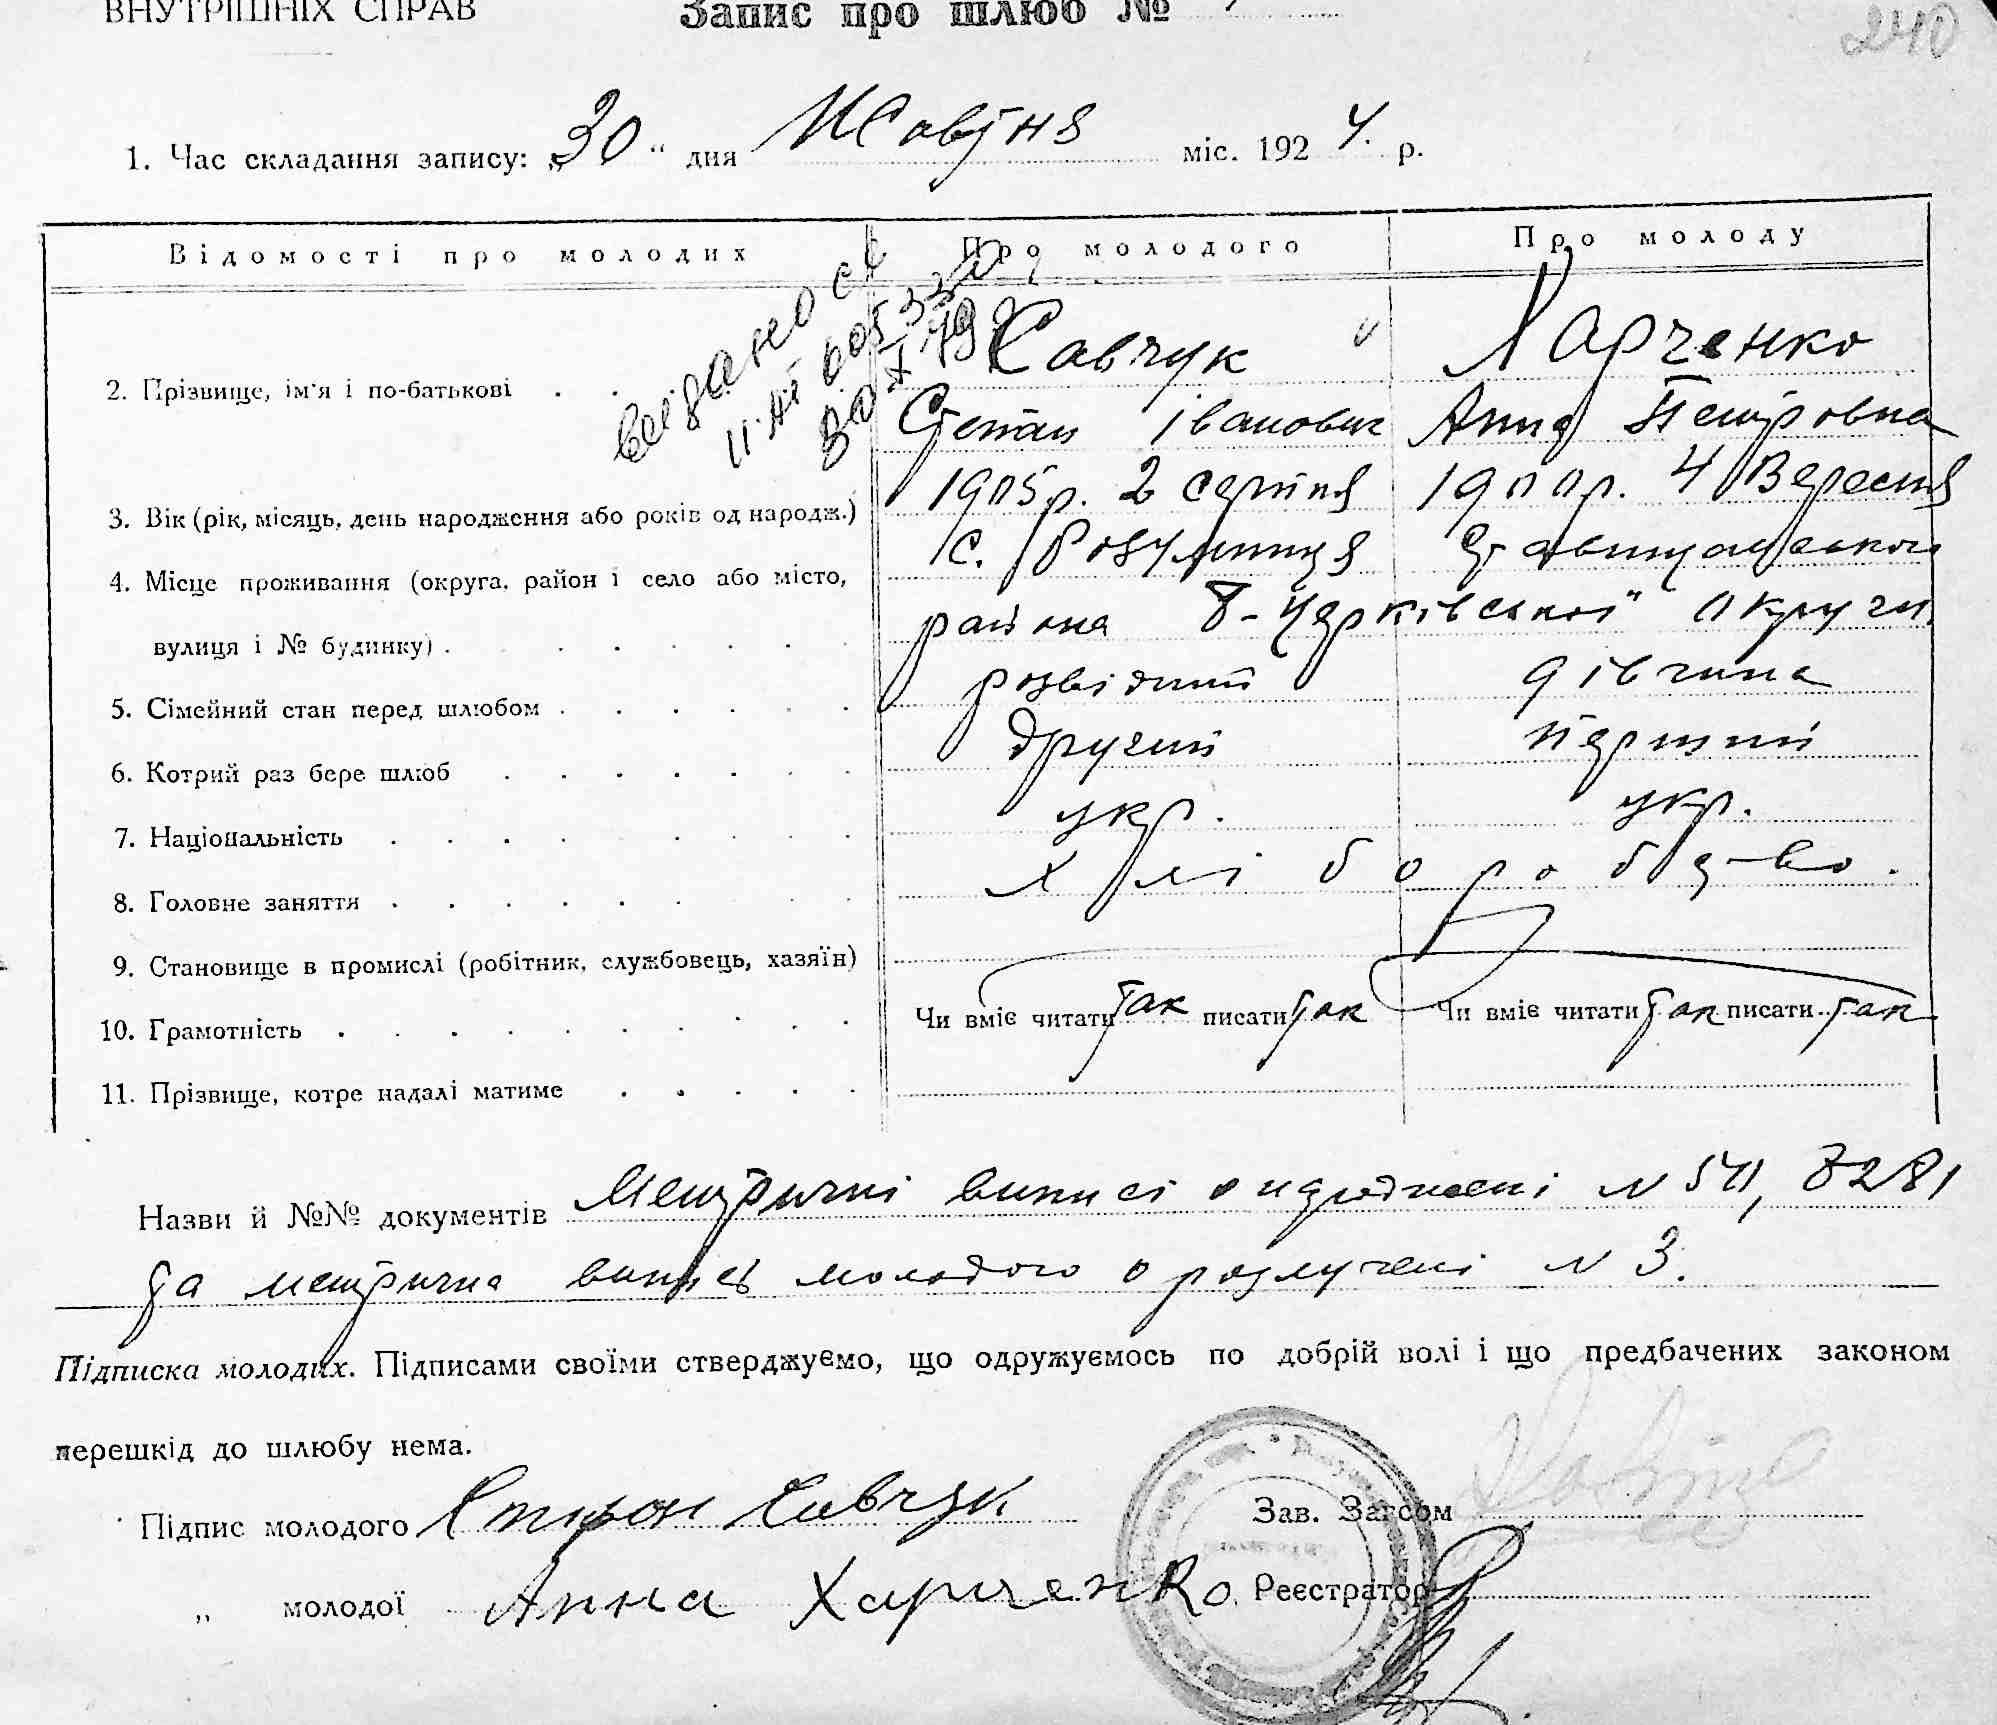 ВНУТРІШНІХ СПРАВ
Запис про шлюб №
240
1. Час складання запису: „30“ дня Жовтня міс. 1924. р.
Відомості про молодих Про молодого Про молоду
видано св
II АГ 005330
30 X
2. Прізвище, ім'я і по-батькові . Савчук Харченко
Степан Іванович Анна Петровна
3. Вік (рік, місяць, день народження або років од народж.) 1905р. 2 серпня 1900р. 4 Вересня
4. Місце проживання (округа, район і село або місто, с. Розумниця Ставищанського
вулиця і № будинку) . района Б-Церківської округи
5. Сімейний стан перед шлюбом . розвідний дівчина
6. Котрий раз бере шлюб . другий перший
7. Національність . укр. укр.
8. Головне заняття . хліборобство.
9. Становище в промислі (робітник, службовець, хазяїн)
10. Грамотність . Чи вміє читати так писати так Чи вміє читати так писати так
11. Прізвище, котре надалі матиме .
Назви й №№ документів Метричні виписі о народжені N 511, 8281
та метрична випись молодого о розлучені N 3.
Підписка молодих. Підписами своїми стверджуємо, що одружуємось по добрій волі і що предбачених законом
перешкід до шлюбу нема.
Підпис молодого Степан Савчук Зав. Загсом
„ молодої Анна Харченко Реєстратор